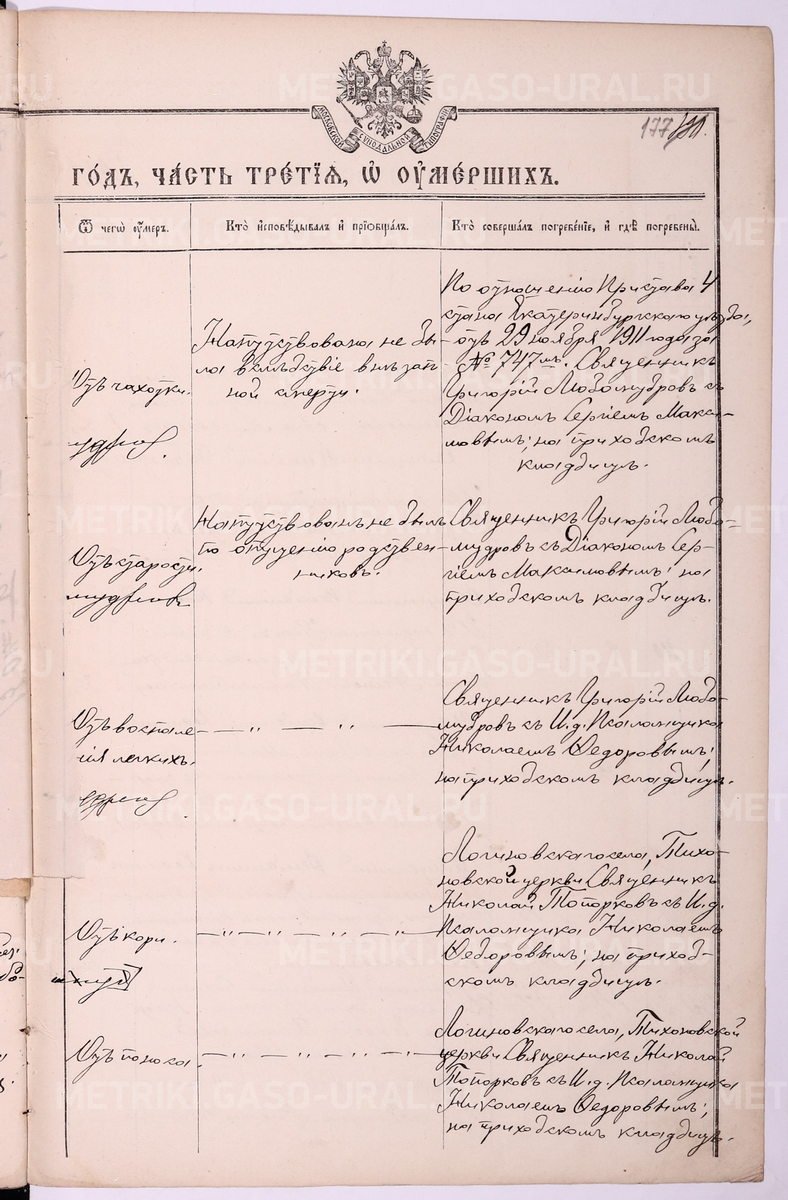 МОСКОВСКОЙ СѴНОДАЛЬНОЙ ТИПОГРАФІИ
177
ГО́ДЪ, ЧА́СТЬ ТРЕ́ТІѦ, Ѡ҆ ОУ҆МЕ́РШИХЪ.
Ѿ чегѡ̀ оу҆́меръ.
Кто̀ и҆сповѣ́дывалъ и҆ прїѡбща́лъ.
Кто̀ соверша́лъ погребе́нїе, и҆ гдѣ̀ погребены̀.
Отъ чахотки.
Напутствована не бы-
ла вслѣдствіе внезап-
ной смерти.
По отношенію Пристава 4
стана Екатеринбургскаго уѣзда,
отъ 29 ноября 1911 года за
№ 747мъ. Священникъ
Григорій Любомудровъ съ
Діакономъ Сергіемъ Макси-
мовымъ; на приходскомъ
кладбищѣ.
Отъ старости.
Напутствованъ не былъ
по опущенію родствен-
никовъ.
Священникъ Григорій Любо-
мудровъ съ Діакономъ Сер-
гіемъ Максимовымъ; на
приходскомъ кладбищѣ.
Отъ воспале-
нія легкихъ.
— „ — „ —
Священникъ Григорій Любо-
мудровъ съ И. д. Псаломщика
Николаемъ Ѳедоровымъ;
на приходскомъ кладбищѣ.
Отъ кори.
— „ — „ — „ — „ —
Логиновскаго села, Тихо-
новской церкви Священникъ
Николай Топорковъ съ И. д.
Псаломщика Николаемъ
Ѳедоровымъ; на приход-
скомъ кладбищѣ.
Отъ поноса.
— „ — „ — „ — „ —
Логиновскаго села, Тихоновской
церкви Священникъ Николай
Топорковъ съ И. д. Псаломщика
Николаемъ Ѳедоровымъ;
на приходскомъ кладбищѣ.
METRIKI.GASO-URAL.RU